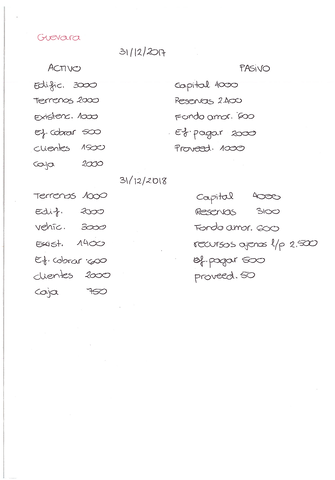 Guevara
31/12/2017
ACTIVO PASIVO
Edific. 3000 Capital 4000
Terrenos 2000 Reservas 2.400
Existenc. 1000 Fondo amor. 600
Ef. cobrar 500 Ef. pagar 2000
Clientes 1500 Proveed. 1000
Caja 2000
31/12/2018
Terrenos 1000 Capital 4000
Edif. 2000 Reservas 3100
Vehic. 3000 Fondo amor. 600
Exist. 1400 recursos ajenos l/p 2.500
Ef. cobrar 600 Ef. pagar 500
clientes 2000 proveed. 50
Caja 750